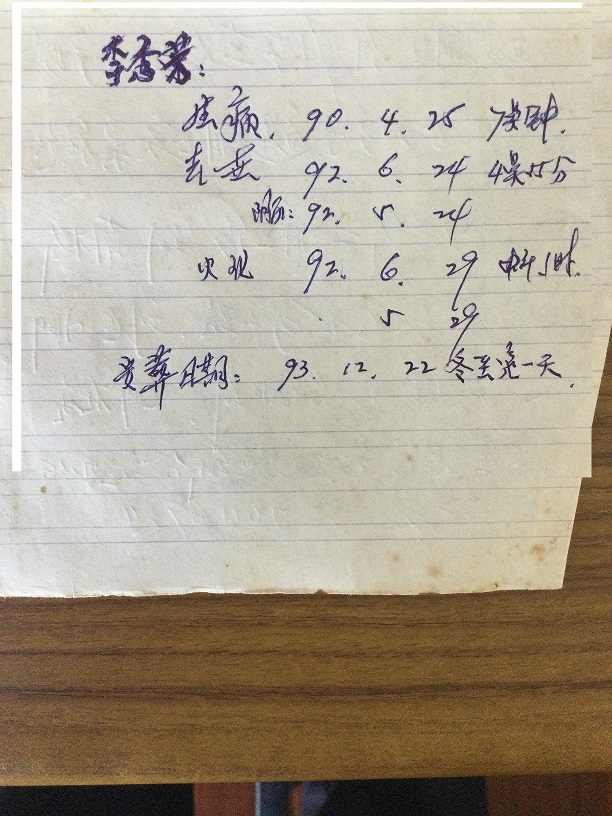 李秀荣:
生病. 90. 4. 25 7点钟.
去世 92. 6. 24 4点55分
阴历: 92. 5. 24
火 92. 6. 29 时.
5 29
安葬日期: 93. 12. 22 冬至 一天.